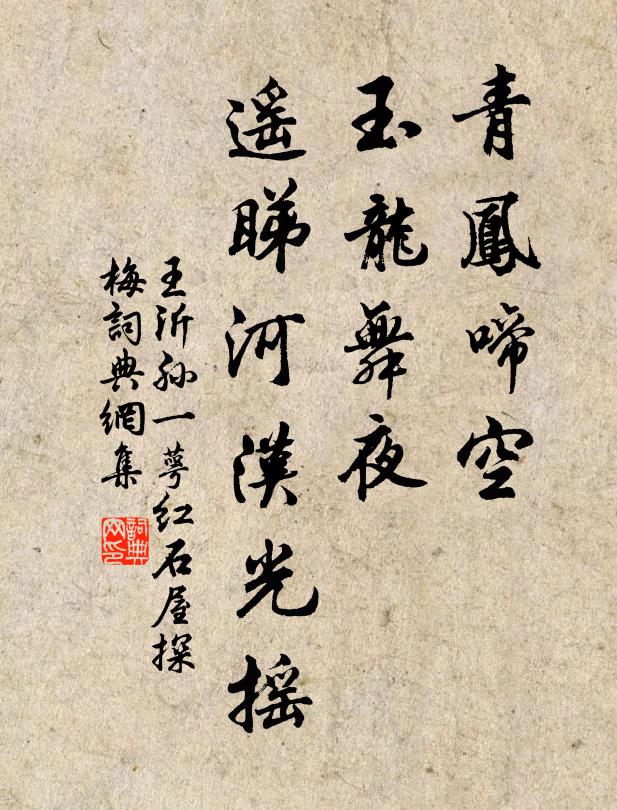 青鳳啼空
玉龍舞夜
遥睇河漢光摇
王沂孙一萼红石屋探
梅詞典網集
詞典
网印